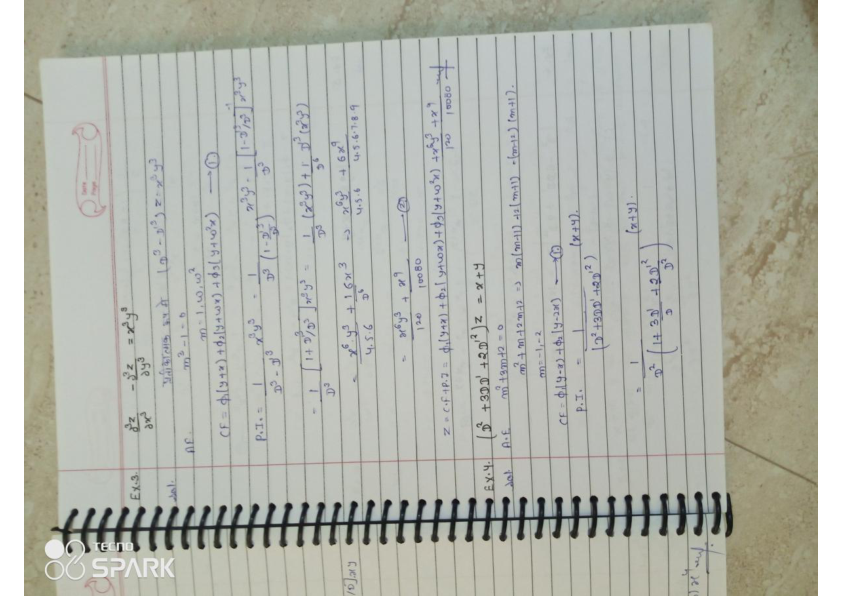 Ex.3. ∂³z/∂x³ - ∂³z/∂y³ = x³y³
Sol. (D³ - D'³) z = x³y³
A.E. m³ - 1 = 0
m = 1, ω, ω²
CF = ϕ₁(y+x) + ϕ₂(y+ωx) + ϕ₃(y+ω²x) —①
P.I. = 1/(D³ - D'³) x³y³ = 1/(D³(1 - D'³/D³)) x³y³ = 1/D³ [1 - D'³/D³]⁻¹ x³y³
= 1/D³ [1 + D'³/D³] x³y³ = 1/D³ (x³y³) + 1/D⁶ D'³ (x³y³)
= x⁶y³/4.5.6 + 1/D⁶ 6x³ ⇒ x⁶y³/4.5.6 + 6x⁹/4.5.6.7.8.9
= x⁶y³/120 + x⁹/10080 —②
Z = C.F + P.I = ϕ₁(y+x) + ϕ₂(y+ωx) + ϕ₃(y+ω²x) + x⁶y³/120 + x⁹/10080
Ex.4. (D² + 3DD' + 2D'²) z = x+y
Sol A.E. m² + 3m + 2 = 0
m² + m + 2m + 2 ⇒ m(m+1) + 2(m+1) = (m+2)(m+1).
m = -1, -2
CF = ϕ₁(y-x) + ϕ₂(y-2x) —①
P.I. = 1/(D² + 3DD' + 2D'²) (x+y).
= 1/(D² (1 + 3D'/D + 2D'²/D²)) (x+y).
TECNO
SPARK